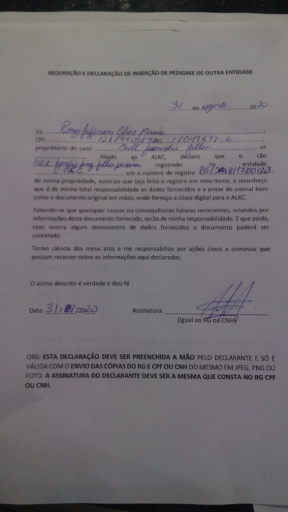 REQUISIÇÃO E DECLARAÇÃO DE INSERÇÃO DE PEDIGREE DE OUTRA ENTIDADE
31 de agosto /20 20
Eu
CPF
proprietário do canil nº
filiado ao ALKC, declaro que o cão
registrado na entidade
sob o número de registro
de minha propriedade, autorizo que seja feito o registro em meu nome, e reconheço
que é de minha total responsabilidade os dados fornecidos e a prova do animal bem
como o documento original em mãos, onde forneço a cópia digital para o ALKC.
Sabendo-se que quaisquer causas ou consequências futuras recorrentes, oriundas por
informações deste documento fornecido, serão de minha responsabilidade. E que ainda,
caso ocorra algum desencontro de dados fornecidos o documento poderá ser
cancelado.
Tenho ciência dos meus atos e me responsabilizo por ações cíveis e criminais que
possam recorrer sobre as informações aqui declaradas.
O acima descrito é verdade e dou fé
Data: 31/ /2020 Assinatura:
(Igual ao RG ou CNH)
OBS: ESTA DECLARAÇÃO DEVE SER PREENCHIDA A MÃO PELO DECLARANTE E SÓ É
VÁLIDA COM O ENVIO DAS CÓPIAS DO RG E CPF OU CNH DO MESMO EM JPEG, PNG OU
FOTO. A ASSINATURA DO DECLARANTE DEVE SER A MESMA QUE CONSTA NO RG CPF
OU CNH.